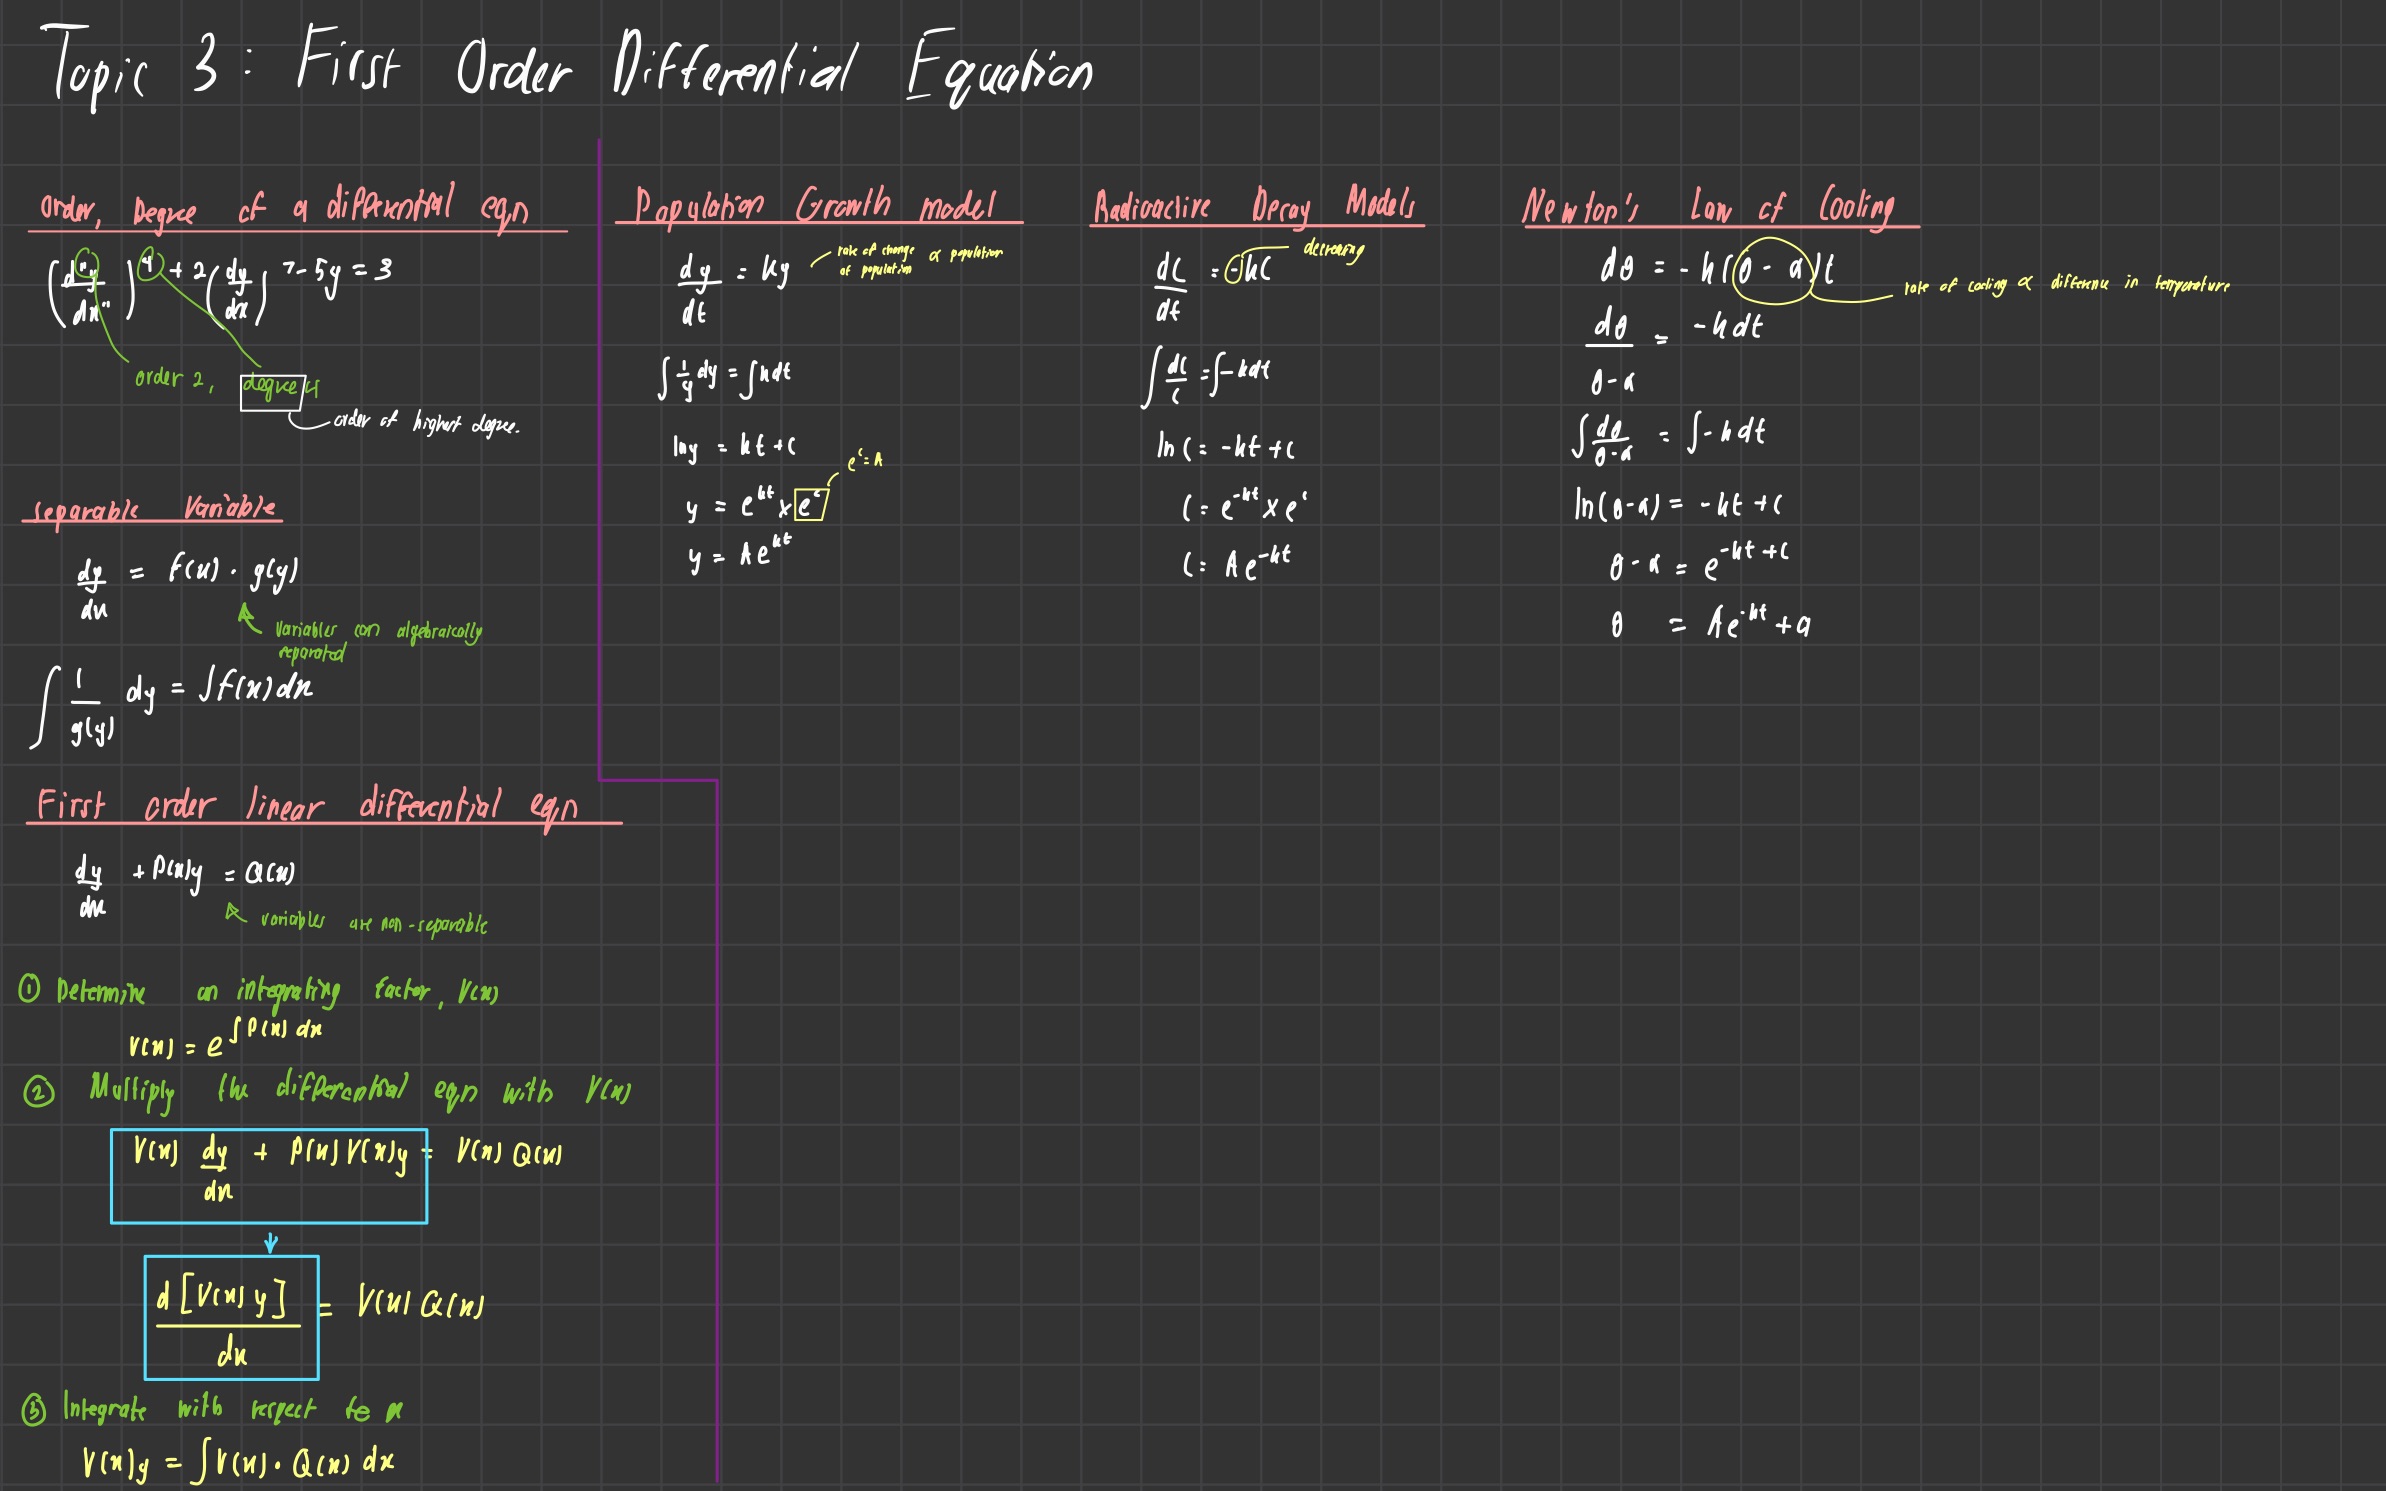 Topic 3: First Order Differential Equation
Order, Degree of a differential eqn
(d²y/dx²)⁴ + 2(dy/dx)⁷ - 5y = 3
order 2, degree 4
order of highest degree.
Separable Variable
dy/dx = f(x) · g(y)
Variables can algebraically
separated
∫ 1/g(y) dy = ∫f(x)dx
First order linear differential eqn
dy/dx + P(x)y = Q(x)
variables are non-separable
① Determine an integrating factor, V(x)
V(x) = e^∫P(x) dx
② Multiply the differential eqn with V(x)
V(x) dy/dx + P(x)V(x)y = V(x) Q(x)
d[V(x) y]/dx = V(x) Q(x)
③ Integrate with respect to x
V(x)y = ∫V(x) · Q(x) dx
Population Growth model
dy/dt = ky
rate of change ∝ population
of population
∫ 1/y dy = ∫kdt
ln y = kt + c
e^c = A
y = e^kt × e^c
y = Ae^kt
Radioactive Decay Models
dC/dt = -kC
decreasing
∫ dC/C = ∫-kdt
ln C = -kt + c
C = e^-kt × e^c
C = Ae^-kt
Newton's Law of Cooling
dθ = -k(θ - a)dt
rate of cooling ∝ difference in temperature
dθ/θ-a = -kdt
∫ dθ/θ-a = ∫-kdt
ln(θ-a) = -kt + c
θ - a = e^-kt+c
θ = Ae^-kt + a